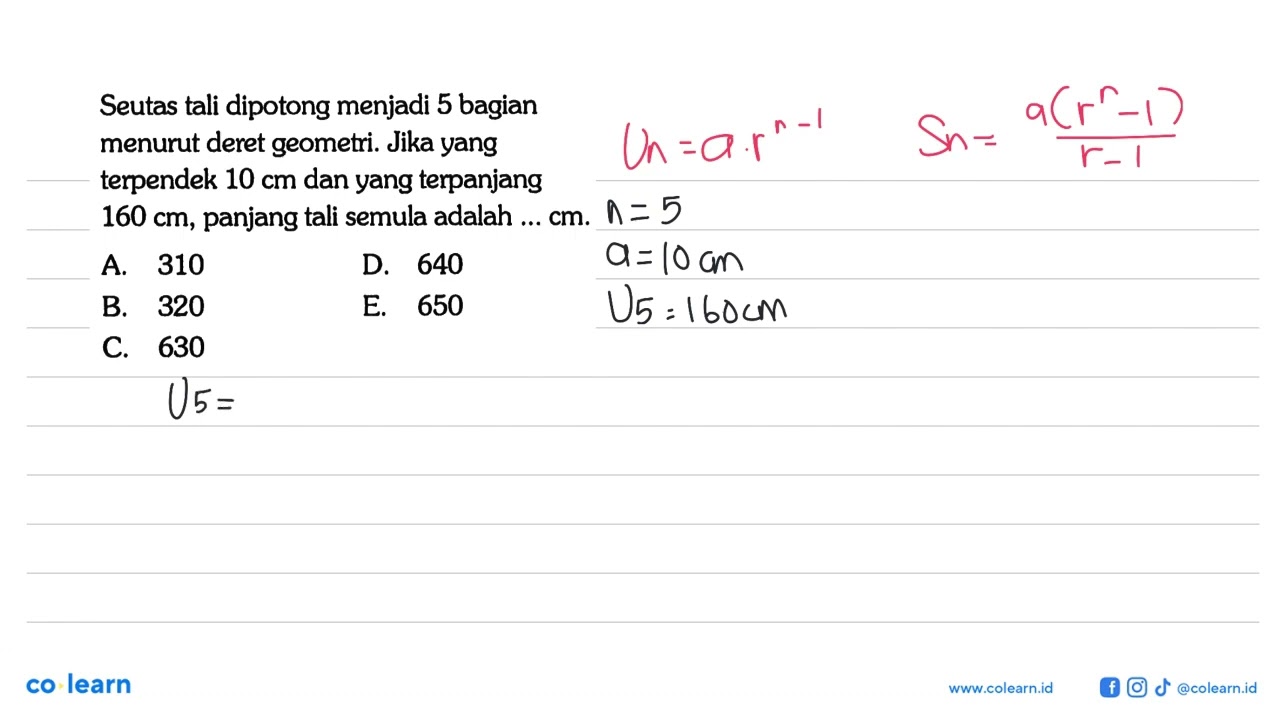 Seutas tali dipotong menjadi 5 bagian
menurut deret geometri. Jika yang
terpendek 10 cm dan yang terpanjang
160 cm, panjang tali semula adalah ... cm.
A. 310 D. 640
B. 320 E. 650
C. 630
Un = a.r^{n-1} Sn = \frac{a(r^n-1)}{r-1}
n = 5
a = 10 cm
U5 = 160 cm
U5 =
co learn
www.colearn.id @colearn.id